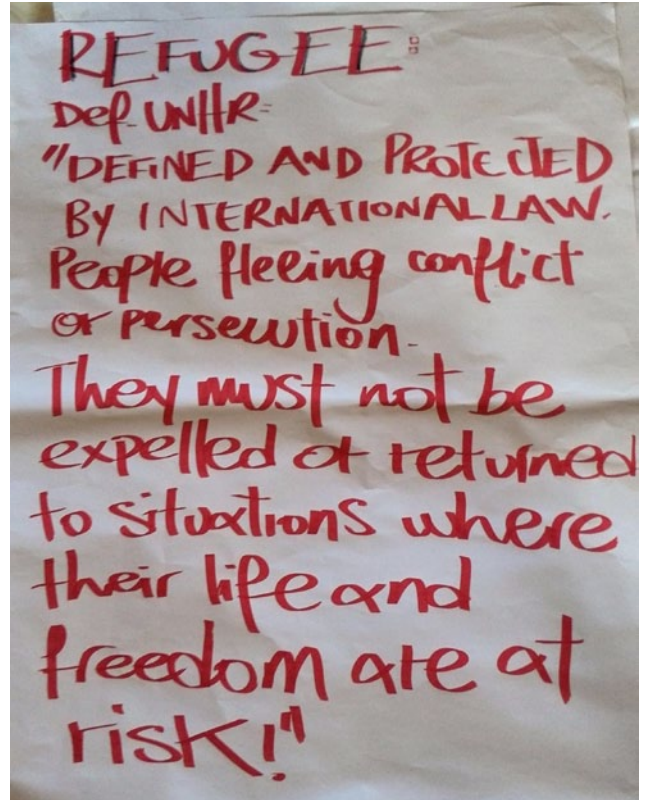 REFUGEE:
Def. UNHR:
"DEFINED AND PROTECTED
BY INTERNATIONAL LAW.
People fleeing conflict
or persecution.
They must not be
expelled or returned
to situations where
their life and
freedom are at
risk!"